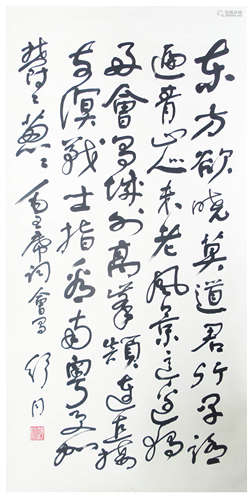 东方欲晓莫道君行早踏
遍青山人未老风景这边独
好會昌城外高峯颠连直接
东溟战士指看南粤更加
郁々葱々 毛主席词會昌 舒同